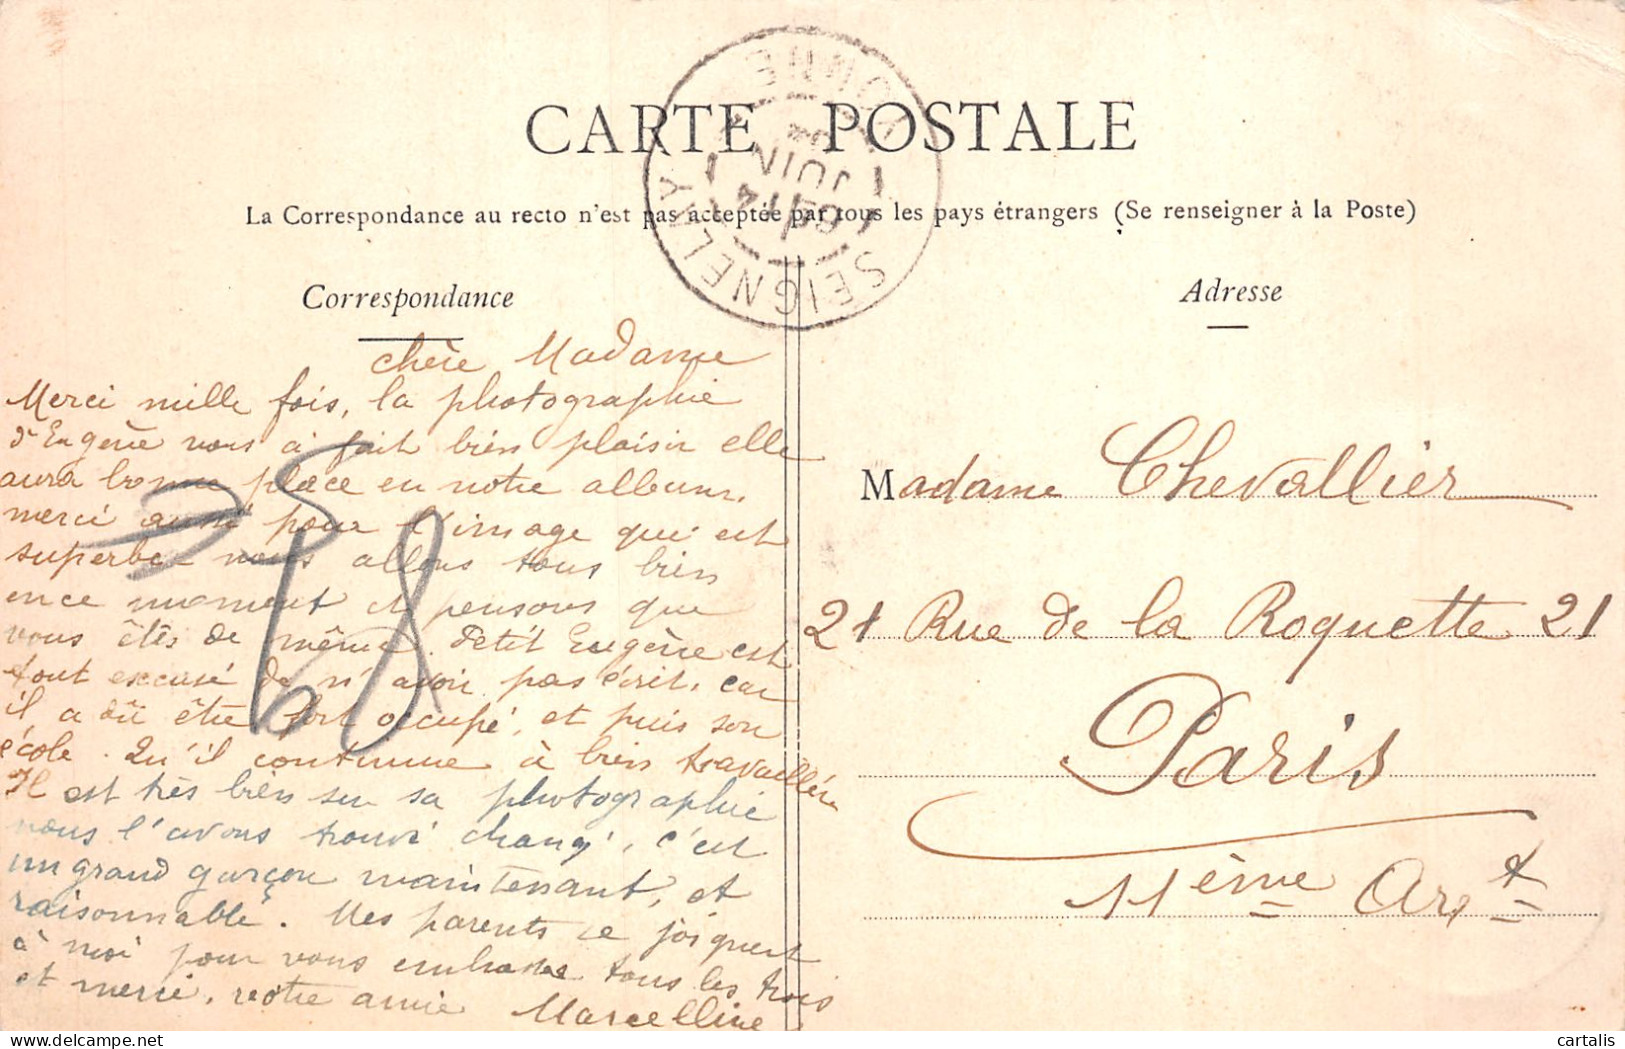 CARTE POSTALE
La Correspondance au recto n'est pas acceptée par tous les pays étrangers (Se renseigner à la Poste)
SEIGNELAY
YONNE
JUIN
Correspondance
chère Madame
Merci mille fois, la photographie
d'Eugène nous a fait bien plaisir elle
aura bonne place en notre album.
merci aussi pour l'image qui est
superbe nous allons tous bien
ence moment et pensons que
vous êtes de même. Petit Eugène est
tout excusé de n'avoir pas écrit, car
il a dû être fort occupé, et puis son
école. Qu'il continue à bien travaillér
Il est très bien sur sa photographie
nous l'avons trouvé changé, c'est
un grand garçon maintenant, et
raisonnable. Mes parents se joignent
à moi pour vous embrasser tous les trois
et merci, votre amie Marcelline
Adresse
Madame Chevallier
21 Rue de la Roquette 21
Paris
11ème Arrt
cartalis